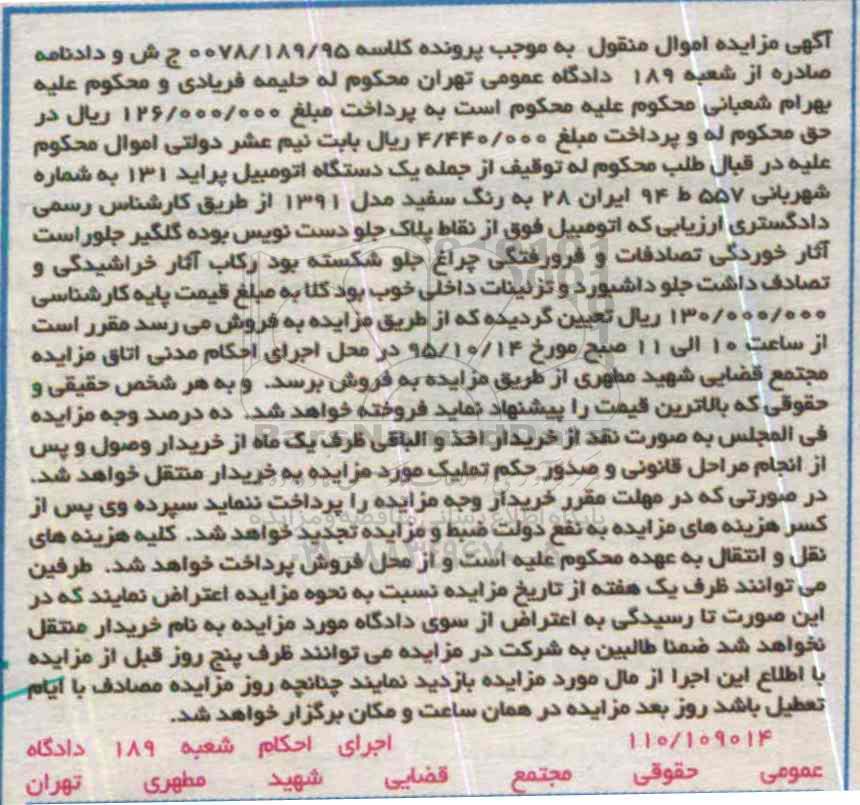 آگهی مزایده اموال منقول به موجب پرونده کلاسه ۰۰۷۸/۱۸۹/۹۵ ج ش و دادنامه
صادره از شعبه ۱۸۹ دادگاه عمومی تهران محکوم له حلیمه فریادی و محکوم علیه
بهرام شعبانی محکوم علیه محکوم است به پرداخت مبلغ ۱۲۶/۰۰۰/۰۰۰ ریال در
حق محکوم له و پرداخت مبلغ ۴/۴۴۰/۰۰۰ ریال بابت نیم عشر دولتی اموال محکوم
علیه در قبال طلب محکوم له توقیف از جمله یک دستگاه اتومبیل پراید ۱۳۱ به شماره
شهربانی ۵۵۷ ط ۹۴ ایران ۲۸ به رنگ سفید مدل ۱۳۹۱ از طریق کارشناس رسمی
دادگستری ارزیابی که اتومبیل فوق از نقاط پلاک جلو دست نویس بوده گلگیر جلور است
آثار خوردگی تصادفات و فرورفتگی چراغ جلو شکسته بود رکاب آثار خراشیدگی و
تصادف داشت جلو داشبورد و تزئینات داخلی خوب بود کلا به مبلغ قیمت پایه کارشناسی
۱۳۰/۰۰۰/۰۰۰ ریال تعیین گردیده که از طریق مزایده به فروش می رسد مقرر است
از ساعت ۱۰ الی ۱۱ صبح مورخ ۹۵/۱۰/۱۴ در محل اجرای احکام مدنی اتاق مزایده
مجتمع قضایی شهید مطهری از طریق مزایده به فروش برسد. و به هر شخص حقیقی و
حقوقی که بالاترین قیمت را پیشنهاد نماید فروخته خواهد شد. ده درصد وجه مزایده
فی المجلس به صورت نقد از خریدار اخذ و الباقی ظرف یک ماه از خریدار وصول و پس
از انجام مراحل قانونی و صدور حکم تملیک مورد مزایده به خریدار منتقل خواهد شد.
در صورتی که در مهلت مقرر خریدار وجه مزایده را پرداخت ننماید سپرده وی پس از
کسر هزینه های مزایده به نفع دولت ضبط و مزایده تجدید خواهد شد. کلیه هزینه های
نقل و انتقال به عهده محکوم علیه است و از محل فروش پرداخت خواهد شد. طرفین
می توانند ظرف یک هفته از تاریخ مزایده نسبت به نحوه مزایده اعتراض نمایند که در
این صورت تا رسیدگی به اعتراض از سوی دادگاه مورد مزایده به نام خریدار منتقل
نخواهد شد ضمنا طالبین به شرکت در مزایده می توانند ظرف پنج روز قبل از مزایده
با اطلاع این اجرا از مال مورد مزایده بازدید نمایند چنانچه روز مزایده مصادف با ایام
تعطیل باشد روز بعد مزایده در همان ساعت و مکان برگزار خواهد شد.
۱۱۰/۱۰۹۰۱۴ اجرای احکام شعبه ۱۸۹ دادگاه
عمومی حقوقی مجتمع قضایی شهید مطهری تهران